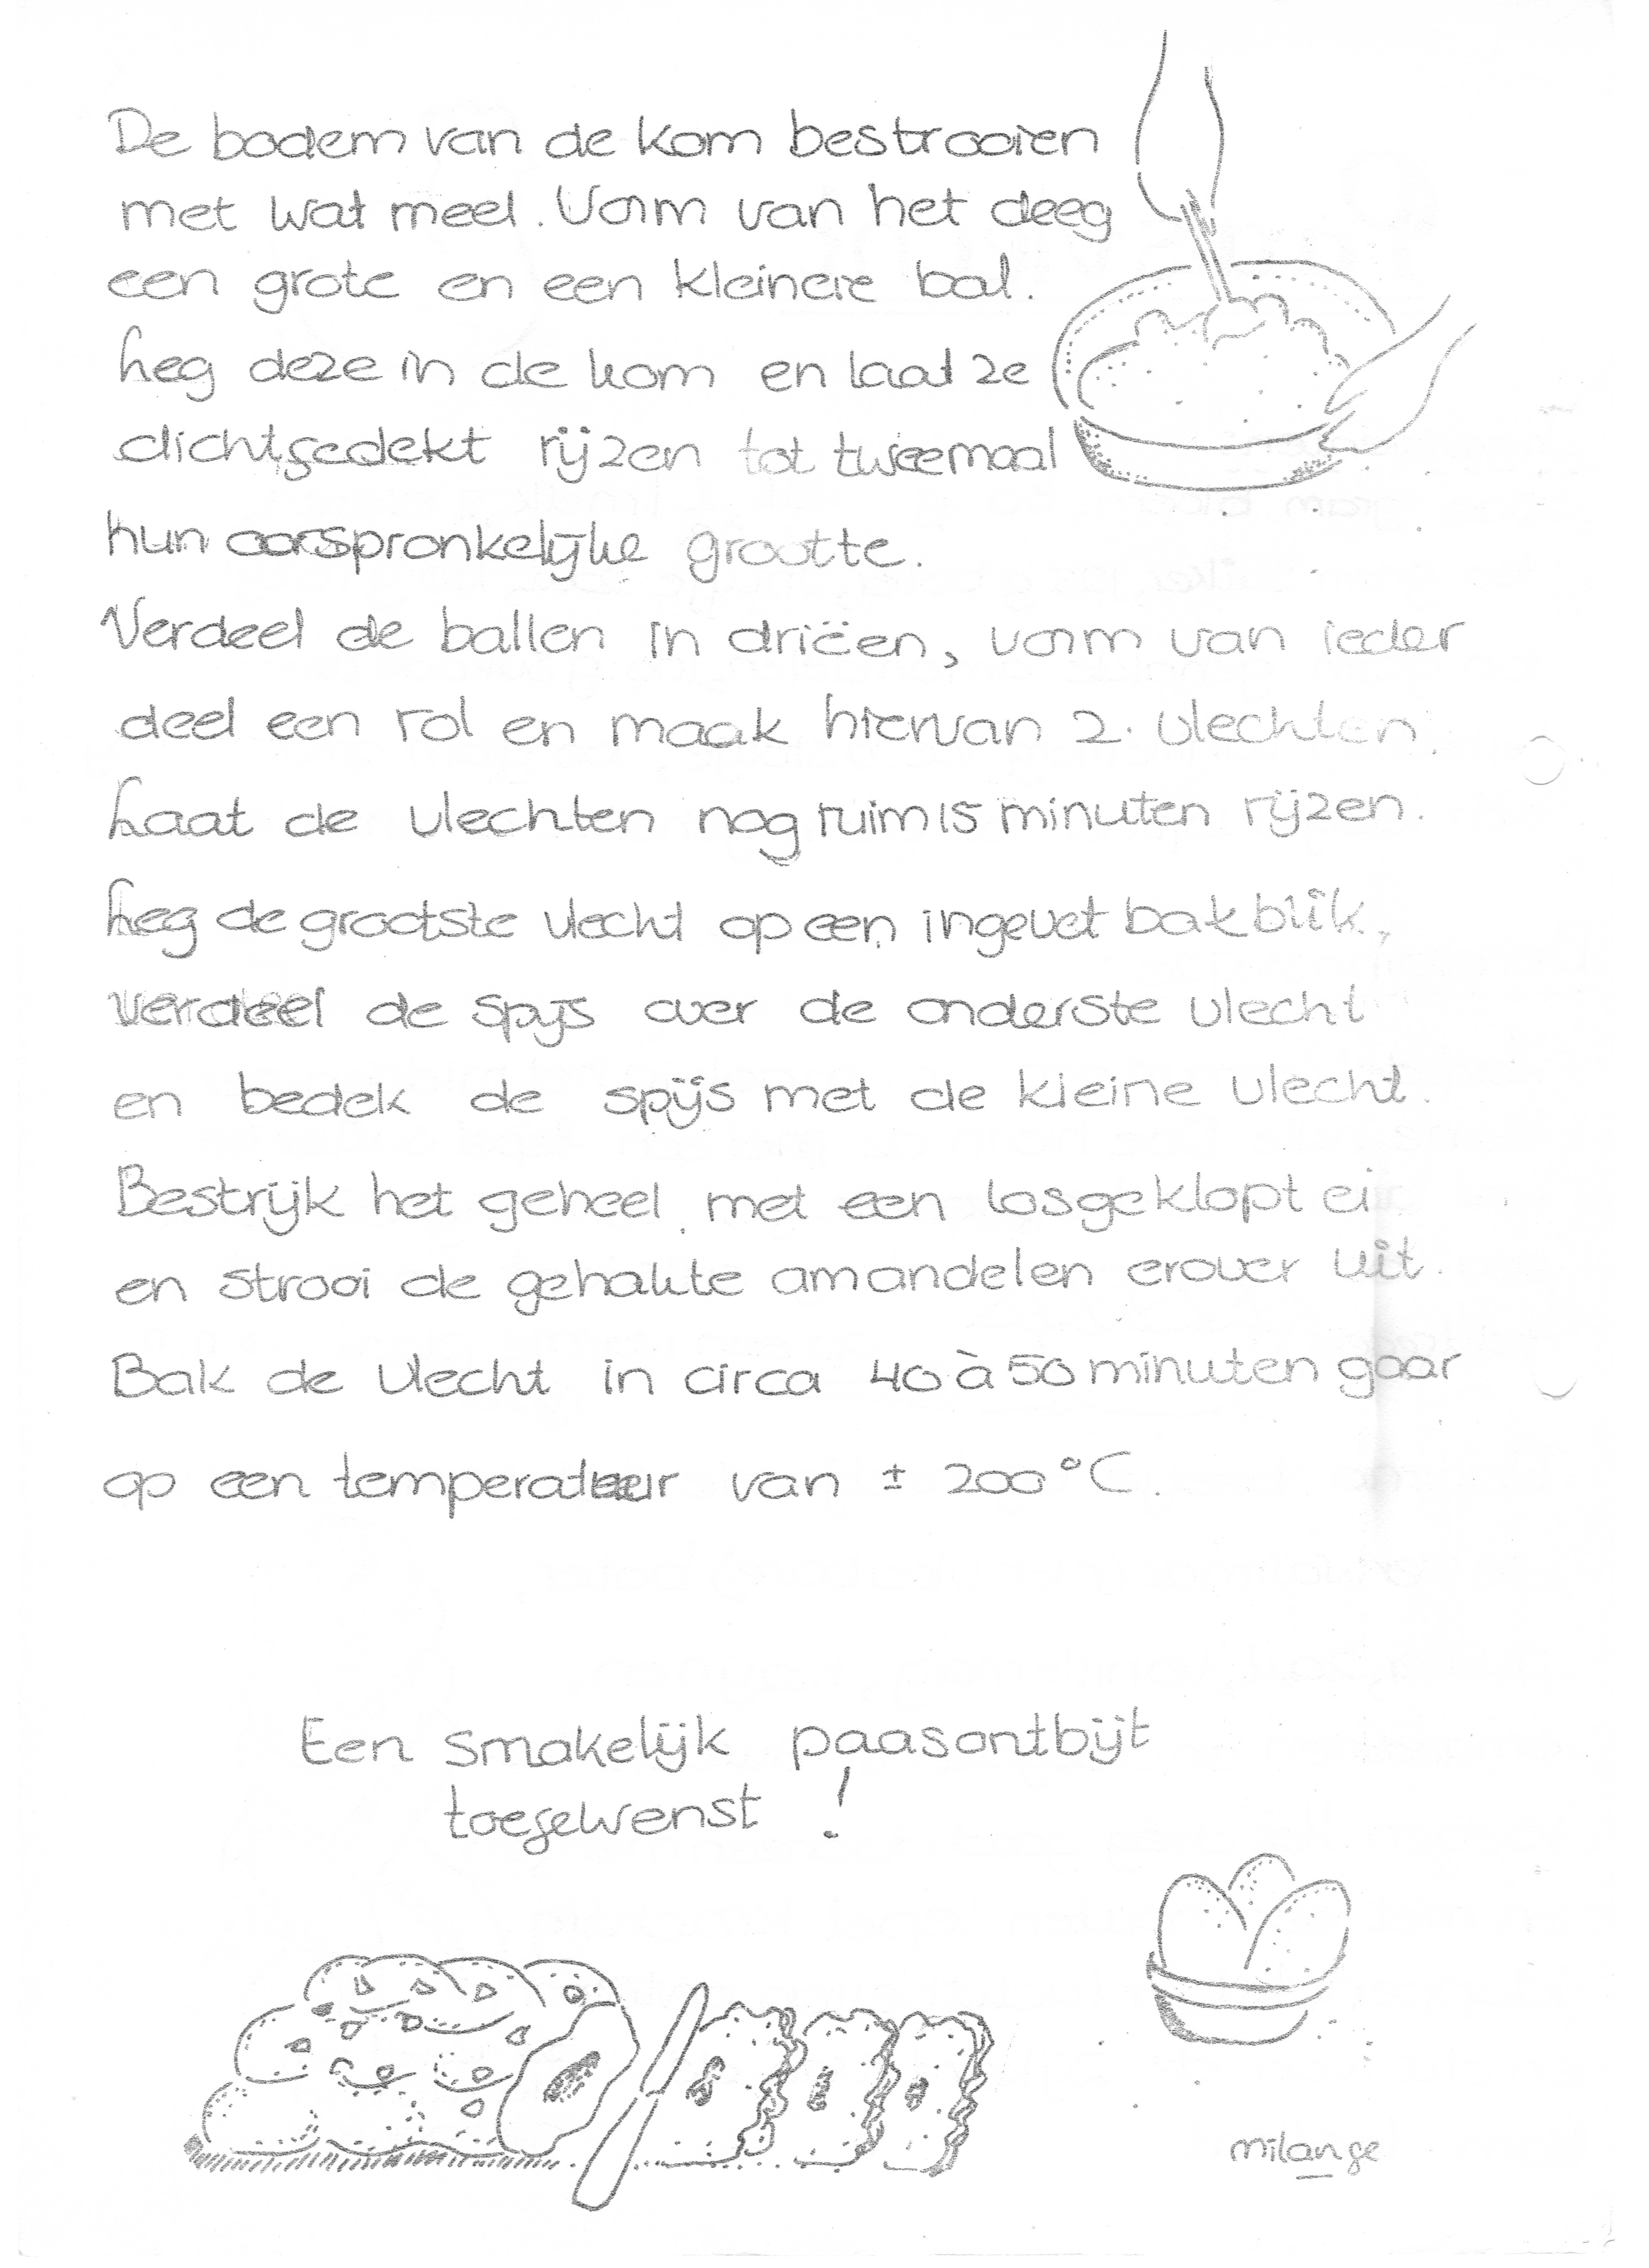 De bodem van de kom bestrooien
met wat meel. Vorm van het deeg
een grote en een kleinere bal.
Leg deze in de kom en laat ze
dichtgedekt rijzen tot tweemaal
hun oorspronkelijke grootte.
Verdeel de ballen in drieën, vorm van ieder
deel een rol en maak hiervan 2. vlechten.
Laat de vlechten nog ruim 15 minuten rijzen.
Leg de grootste vlecht op een ingevet bakblik,
verdeel de spijs over de onderste vlecht
en bedek de spijs met de kleine vlecht.
Bestrijk het geheel met een losgeklopt ei
en strooi de gehakte amandelen erover uit.
Bak de vlecht in circa 40 à 50 minuten gaar
op een temperatuur van ± 200°C.
Een smakelijk paasontbijt
toegewenst !
milange